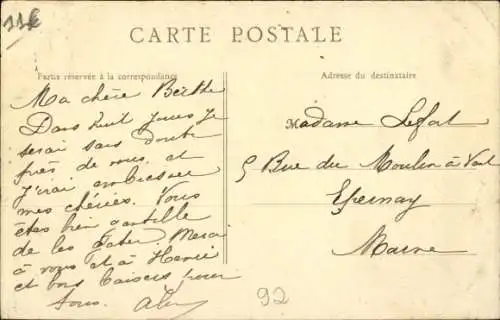 11k
CARTE POSTALE
Partie réservée à la correspondance
Adresse du destinataire
Ma chère Berthe
Dans huit jours je
serai sans doute
près de vous et
j'irai embrasser
mes chéries. Vous
êtes bien gentille
de les gâter. Merci
à vous et à Henri
et bons baisers pour
tous.
Madame Lefort
5 Rue du Moulin à Vent
Epernay
Marne
92